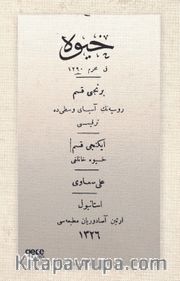 خیوه
فی محرم ۱۲۹۰
برنجی قسم
روسیه‌نك آسیای وسطی‌ده
ترقیسی
ایکنجی قسم
خیوه خانلغی
علی سعاوی
استانبول
اوتین آصادوریان مطبعه‌سی
۱۳۲۶
gece
Kitapavrupa.com